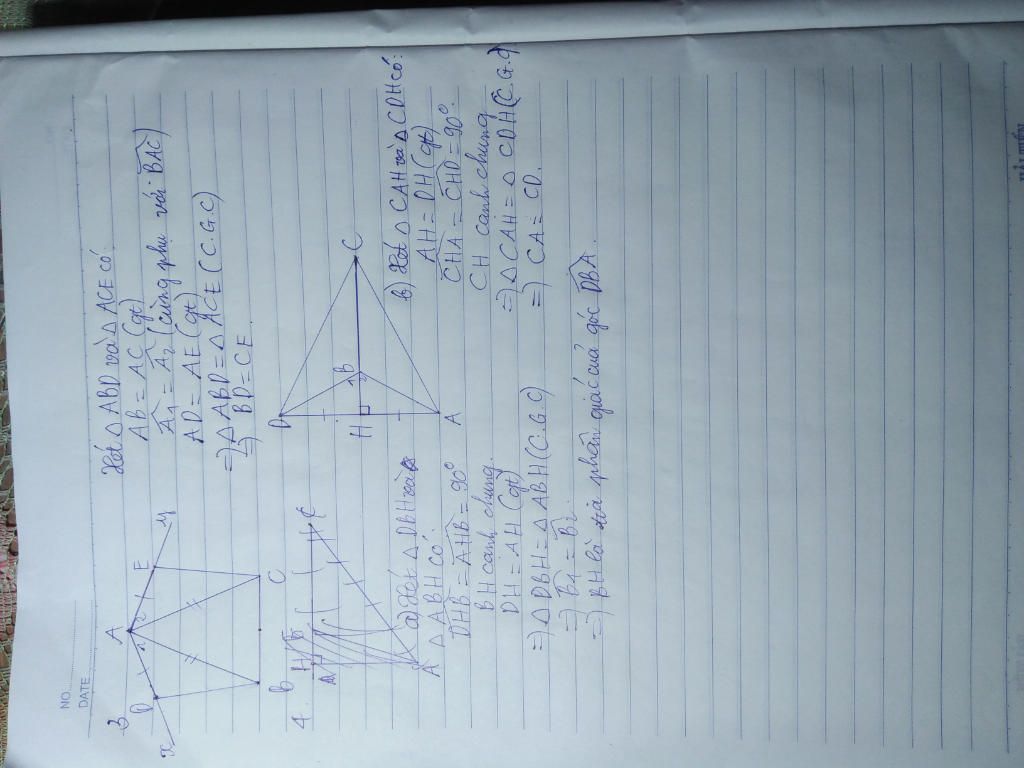 NO.
DATE
3
x
D
A
E
y
C
Xét △ ABD và △ ACE có:
AB = AC (gt)
A1 = A2 (cùng phụ với BAC)
AD = AE (gt)
=) △ ABD = △ ACE (C.G.C)
=) BD = CE
4.
B
D
H
B
C
A
a) Xét △ DBH và
△ ABH có:
DHB = AHB = 90°
BH cạnh chung.
DH = AH (gt)
=) △ DBH = △ ABH (C.G.C)
=) B1 = B2.
=) BH là phân giác của góc DBA.
b) Xét △ CAH và △ CDH có:
AH = DH (gt)
CHA = CHD = 90°.
CH cạnh chung
=) △ CAH = △ CDH (C.G.C)
=) CA = CD.